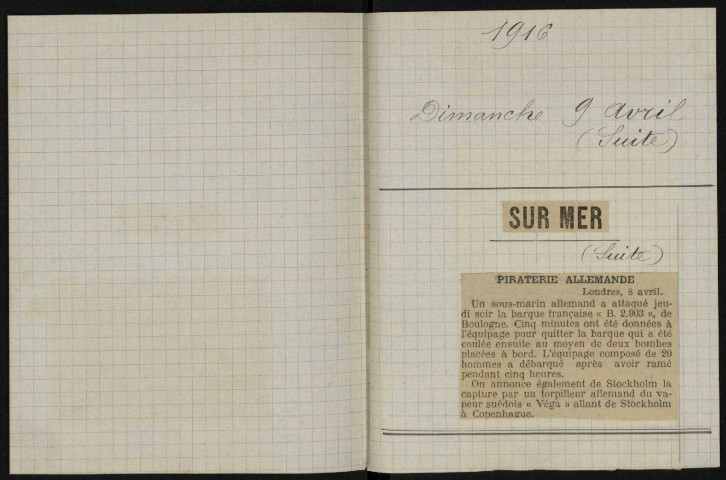 1916
Dimanche 9 avril
(Suite)
SUR MER
(Suite)
PIRATERIE ALLEMANDE
Londres, 8 avril.
Un sous-marin allemand a attaqué jeu-
di soir la barque française « B. 2.903 », de
Boulogne. Cinq minutes ont été données à
l'équipage pour quitter la barque qui a été
coulée ensuite au moyen de deux bombes
placées à bord. L'équipage composé de 20
hommes a débarqué après avoir ramé
pendant cinq heures.
On annonce également de Stockholm la
capture par un torpilleur allemand du va-
peur suédois « Véga » allant de Stockholm
à Copenhague.